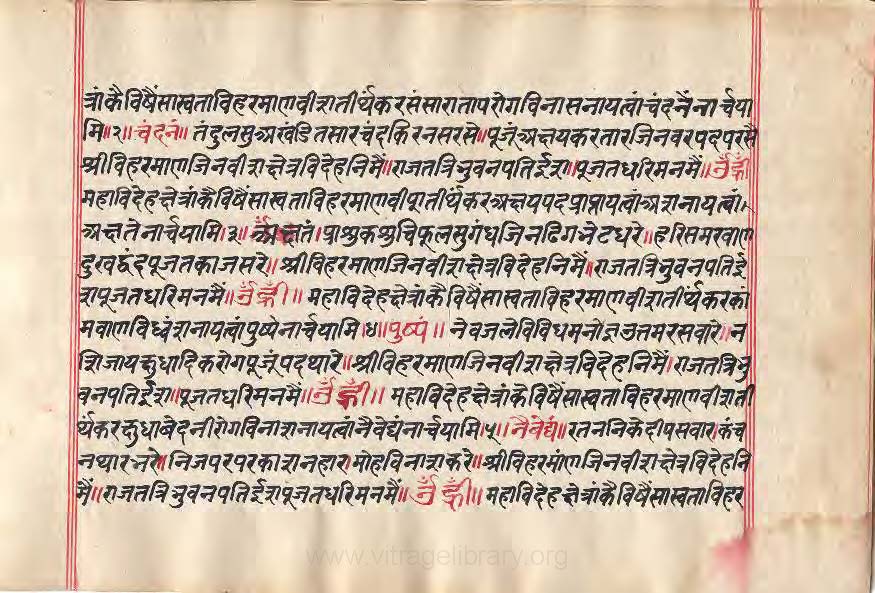 त्रांकैविषैंसास्वताविहरमाणवीशतीर्थंकरसंसारातापरोगविनासनायत्वांचंदनैंनार्चया
मि॥२॥चंदनं॥तंदुलसुअखंडितसारचंदकिरनसरसे॥पूजूंअक्षयकरतारजिनवरपदपरसै
श्रीविहरमाणजिनवीशक्षेत्रविदेहनिमैं॥राजतत्रिभुवनपतिईश॥पूजतधरिमनमैं॥ॐह्रीं
महाविदेहक्षेत्रांकैविषैंसास्वताविहरमाणवीशतीर्थंकरअक्षयपदप्राप्तायत्वांअशनायत्वां।
अक्षतेनार्चयामि।३॥अक्षतं।प्राशुकशुचिफूलसुगंधजिनढिगभेटधरे॥हरिसमरवाण
दुखद्वंदपूजतकाजसरे॥श्रीविहरमाणजिनवीशक्षेत्रविदेहनिमैं॥राजतत्रिभुवनपतिई
शपूजतधरिमनमैं॥ॐह्रीं॥महाविदेहक्षेत्रांकैविषैंसास्वताविहरमाणवीशतीर्थंकरकां
मवाणविध्वंशनायत्वांपुष्पेनार्चयामि।४॥पुष्पं॥नेवजलेविविधमनोज्ञउत्तमरसवारे॥न
शिजायक्षुधादिकरोगपूजूंपदथारे॥श्रीविहरमाणजिनवीशक्षेत्रविदेहनिमैं॥राजतत्रिभु
वनपतिईश॥पूजतधरिमनमैं॥ॐह्रीं॥महाविदेहक्षेत्रांकैविषैंसास्वताविहरमाणवीशती
र्थंकरक्षुधावेदनीरोगविनाशनायत्वांनैवेद्यंनार्चयामि।५॥नैवेद्यं॥रतननिकेदीपसवार।कंच
नथारभरे॥निजपरपरकाशनहार।मोहविनाशकरे॥श्रीविहरमांणजिनवीशक्षेत्रविदेहनि
मैं॥राजतत्रिभुवनपतिईशपूजतधरिमनमैं॥ॐह्रीं॥महाविदेहक्षेत्रांकैविषैंसास्वताविहर
www.vitragelibrary.org